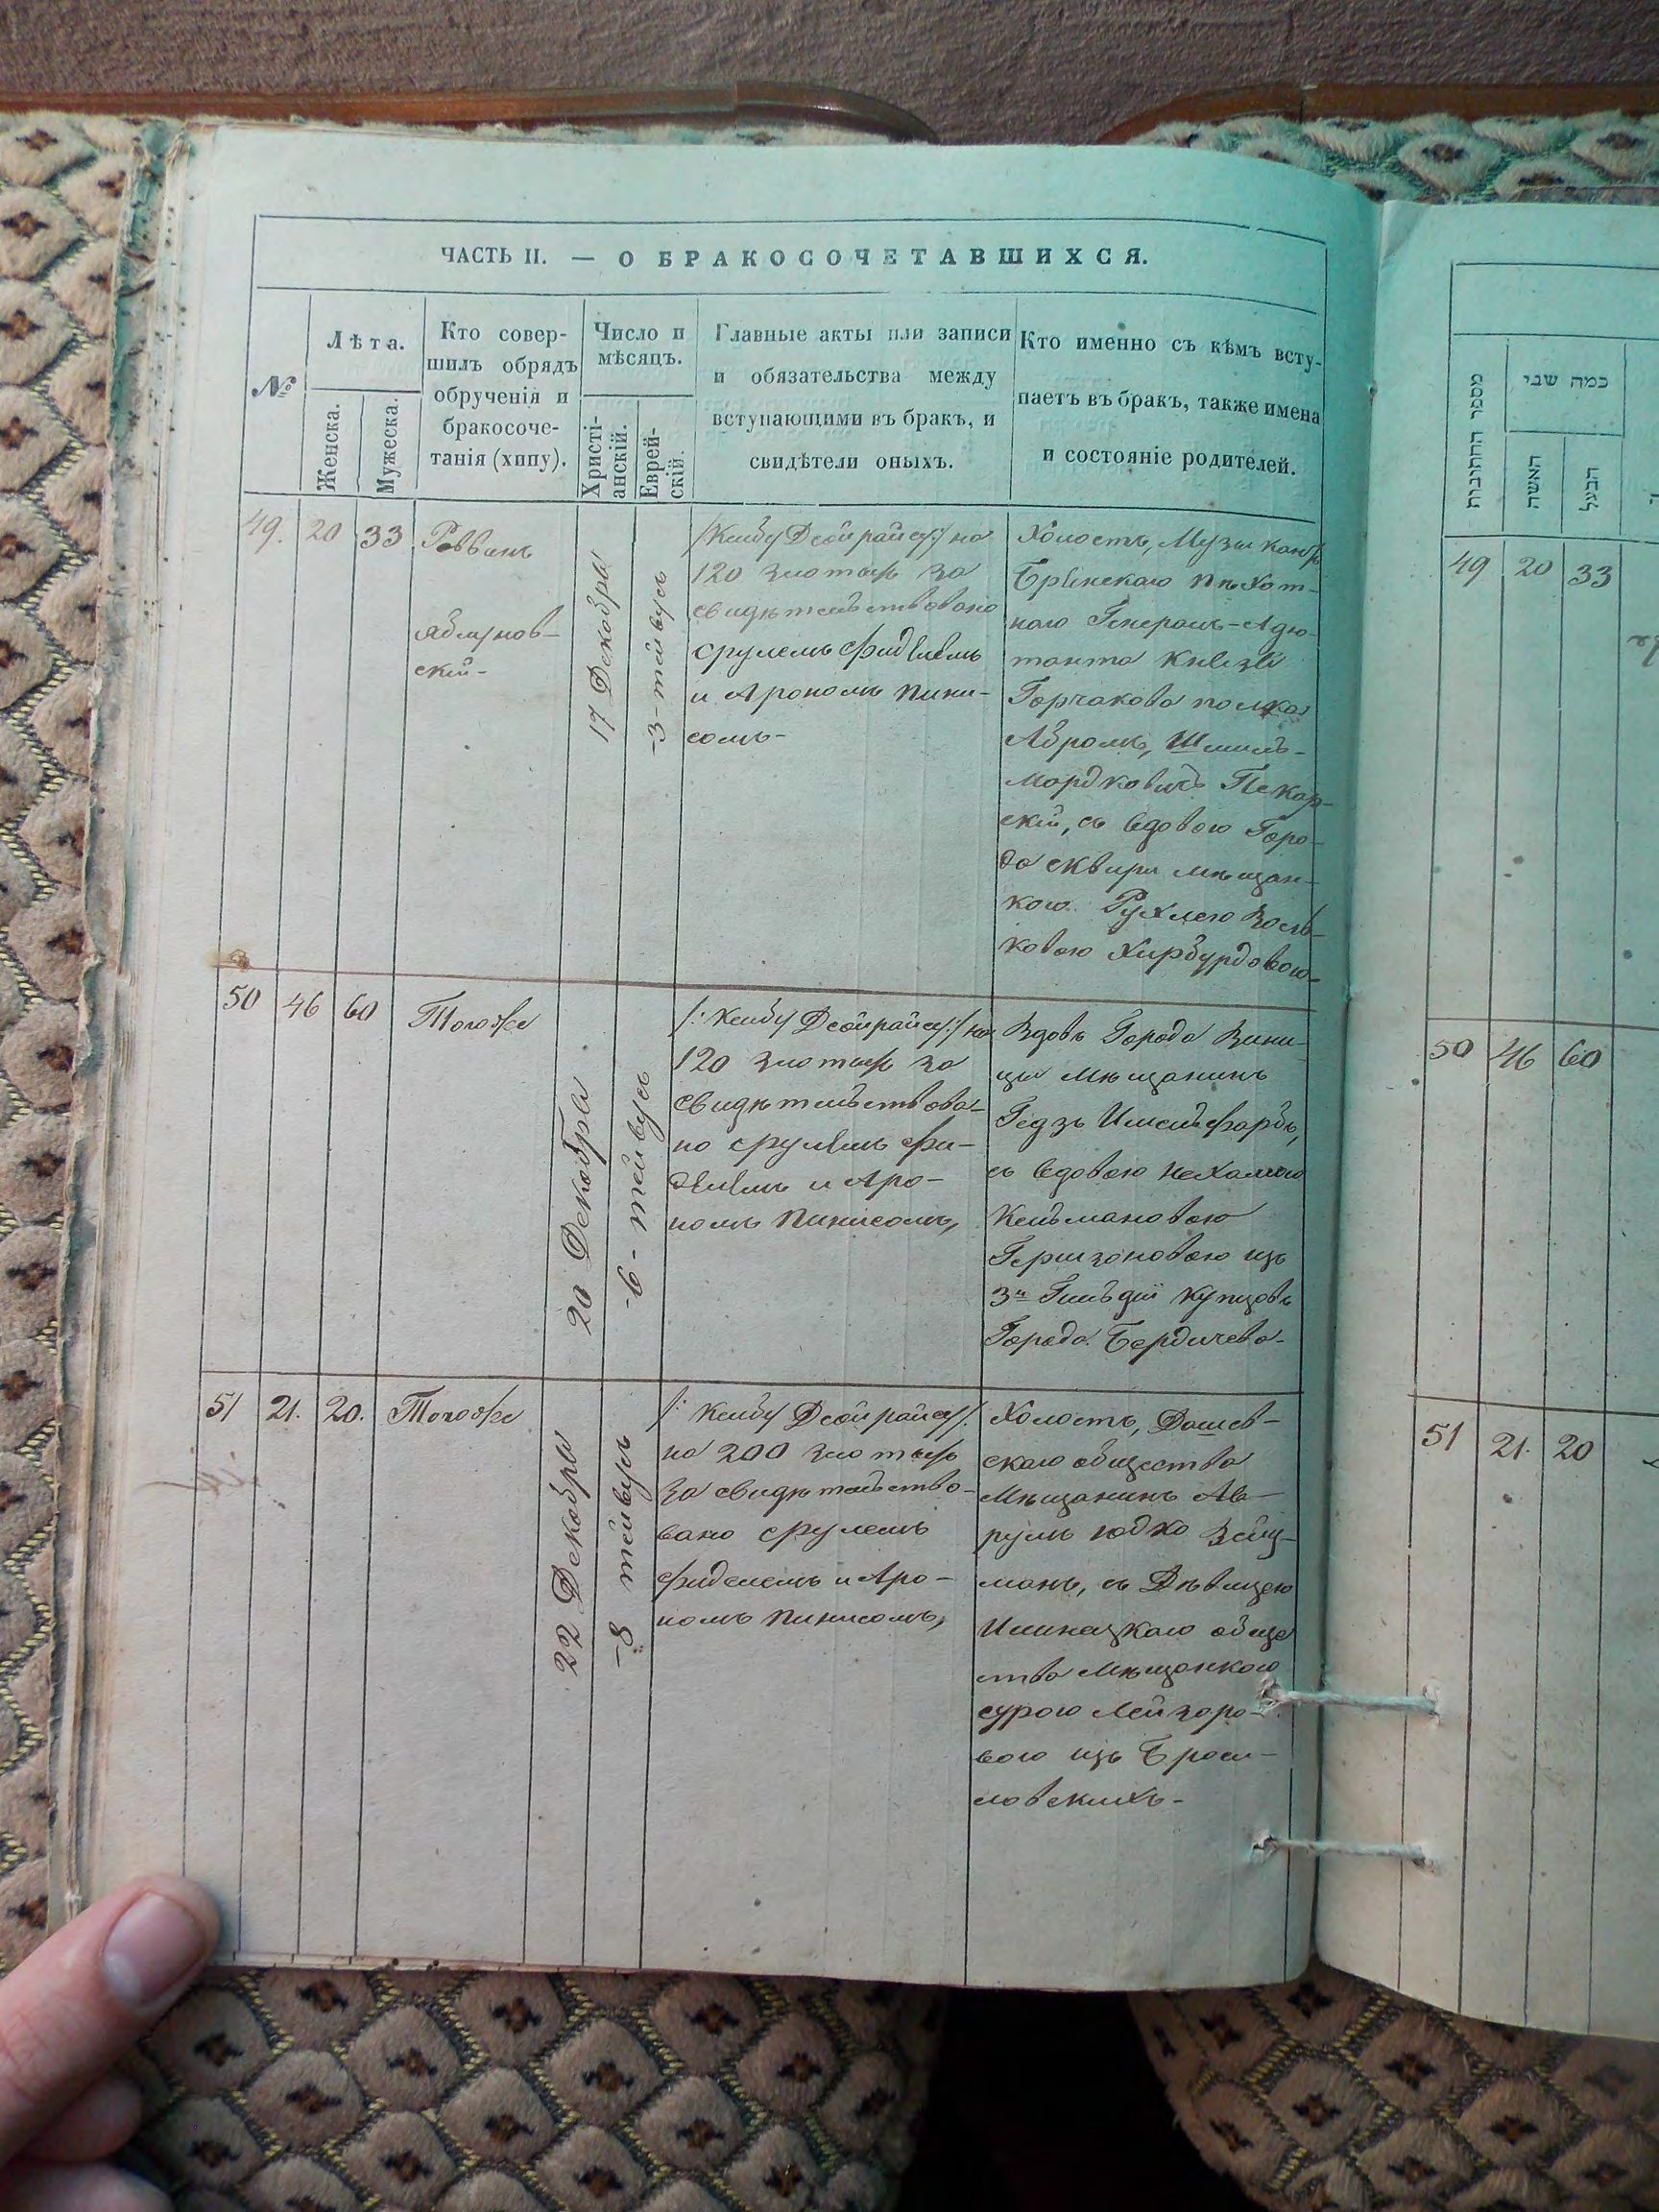 ЧАСТЬ II. — О БРАКОСОЧЕТАВШИХСЯ.
№
Лѣта.
Женска.
Мужеска.
Кто совер-
шилъ обрядъ
обрученія и
бракосоче-
танія (хипу).
Число и
мѣсяцъ.
Христі-
анскій.
Еврей-
скій.
Главные акты или записи
и обязательства между
вступающими въ бракъ, и
свидѣтели оныхъ.
Кто именно съ кѣмъ всту-
паетъ въ бракъ, также имена
и состояніе родителей.
49. 20 33
Раввинъ
Яблунов-
скій-
17 Декабря
-3- тейвусъ
на
120 злотыхъ за
свидѣтельствовано
срулемъ Фидлемъ
и Арономъ Пини-
сомъ-
Холостъ, Музыкантъ
Брянскаго пѣхот-
наго Генералъ-Адю-
танта Князя
Горчакова полка
Абромъ, Шмиль-
Мордковичъ Пекар-
скій, съ вдовою Горо-
да сквиры мѣщан-
кою Рухлею Воль-
ковою Хирбурдовою-
50 46 60
Тогоже
20 Декабря
-6- тейвусъ
на
120 злотыхъ за
свидѣтельствова-
но срулемъ Фи-
делемъ и Аро-
номъ Пинисомъ,
Вдовъ Города Вини-
цы мѣщанинъ
съ вдовою Нехамою
Кельмановою
Гершзоновою изъ
3й Гильдіи купцовъ
Города Бердичева-
51 21. 20.
Тогоже
22 Декабря
-8 тейвусъ
на 200 злотыхъ
за свидѣтельство-
вано срулемъ
Фиделемъ и Аро-
номъ Пинисомъ,
Холостъ, Дашев-
скаго общества
Мѣщанинъ Ав-
румъ Юдко Вайц-
манъ, съ Дѣвицею
Илинецкаго обще
ства Мѣщанкою
сурою Лейзоро-
вою изъ Браси-
ловскихъ-
מספר החתונות
כמה שני
האשה
הבעל
49 20 33
50 46 60
51 21. 20